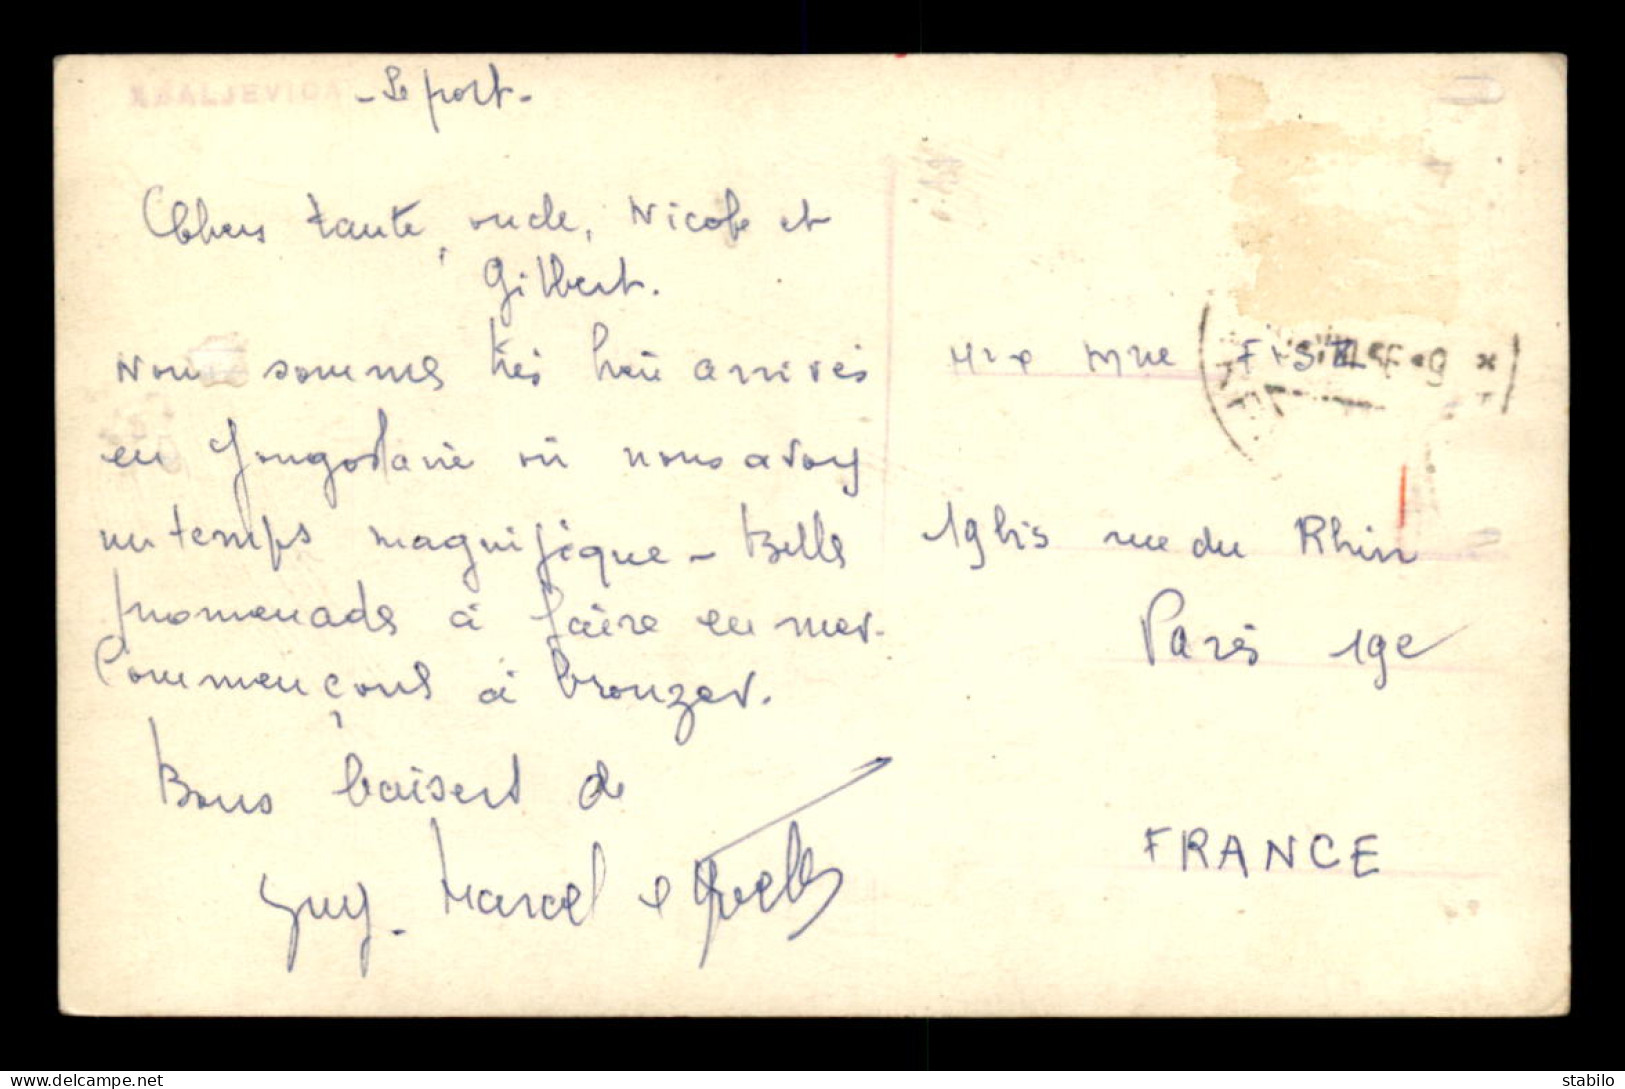 KRALJEVICA - Le port -
Chers tante, oncle, Nicole et
Gilbert.
Nous sommes très bien arrivés
en Yougoslavie où nous avons
un temps magnifique - Belles
promenades à faire en mer.
Commençons à bronzer.
Bons baisers de
Guy - Marcel e
Mr e Mme
19 bis rue du Rhin
Paris 19e
FRANCE
delcampe.net
stabilo